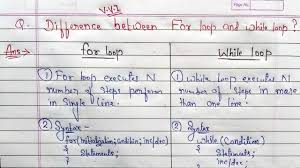 V.V.I
Page No.
Q. Difference between For loop and while loop?
Ans → for loop
while loop
① For loop executes N
number of steps perform
in Single line.
① while loop executes N
number of steps in more
than one line.
② Syntax -
for(initialization; condition; inc/dec)
{
Statements;
}
② Syntax
while (Condition)
{
Statements;
inc/dec;